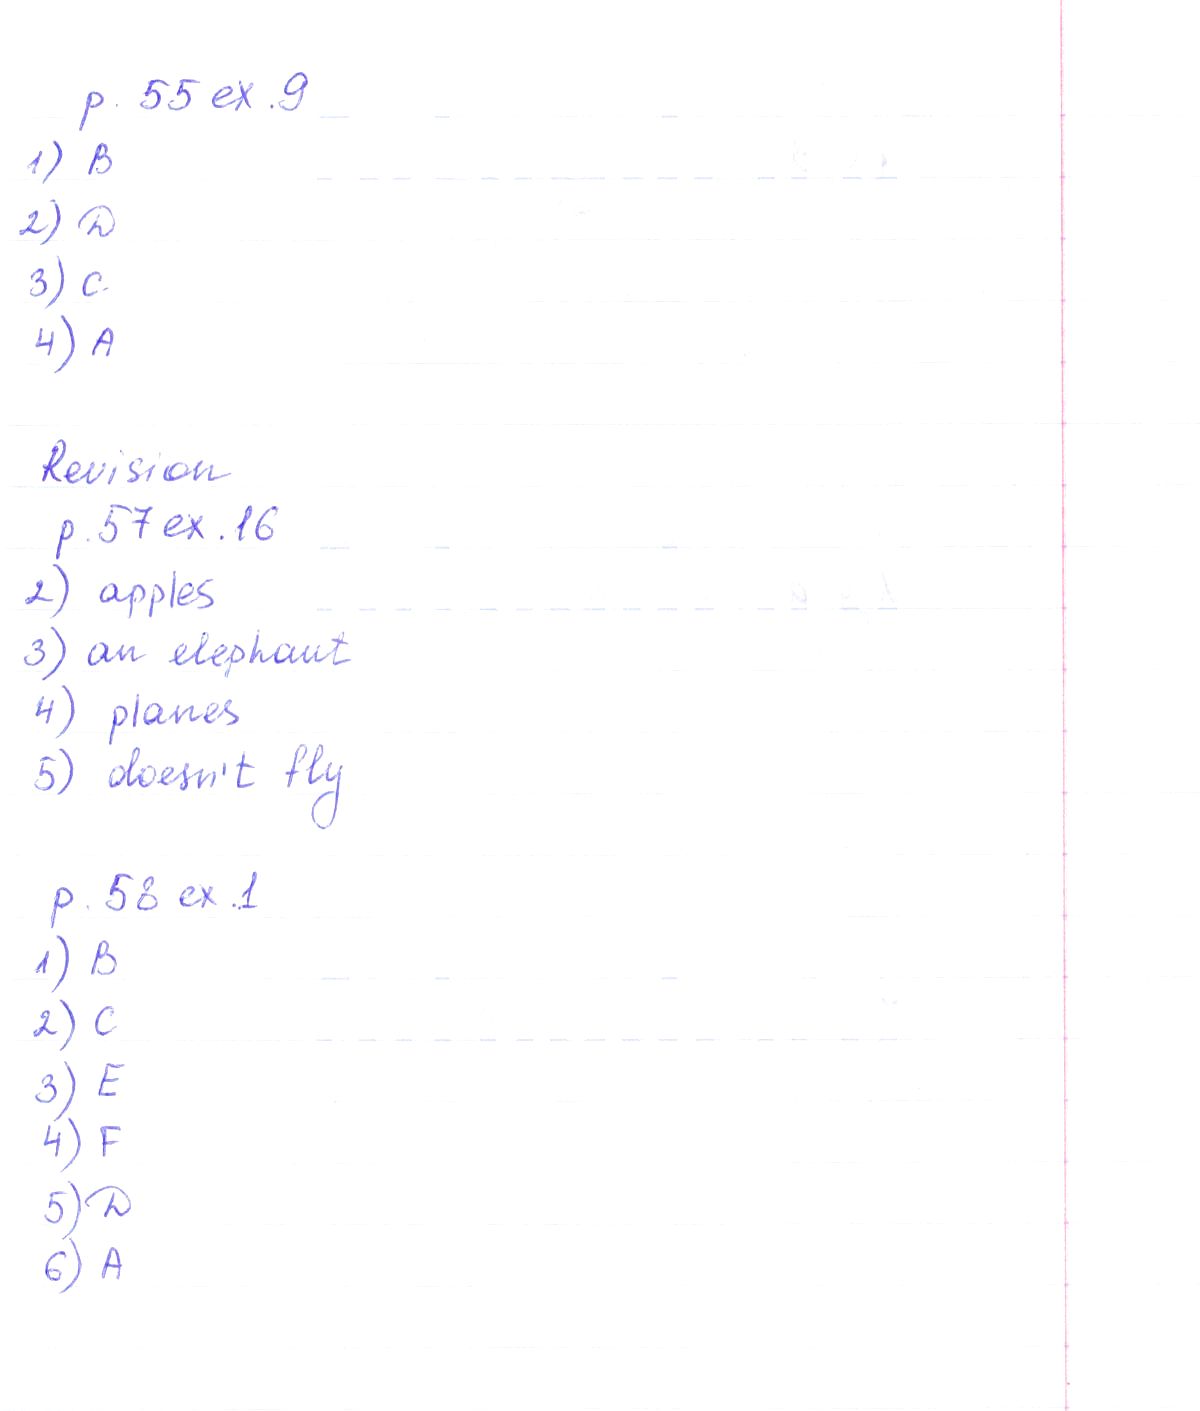 p. 55 ex. 9
1) B
2) D
3) C
4) A
Revision
p. 57 ex. 16
2) apples
3) an elephant
4) planes
5) doesn't fly
p. 58 ex. 1
1) B
2) C
3) E
4) F
5) D
6) A